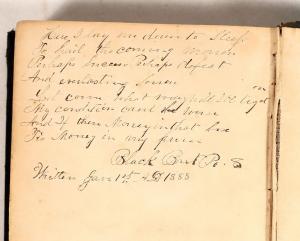 Here I lay me down to Sleep
To wait the coming morrow
Perhaps Success Perhaps defeat
And everlasting Sorrow
come what on
My condition cant be worse
And if theres Money in that Box
Tis Money in my purse
Black Bart Po. 8
Written Jan 1st 1888